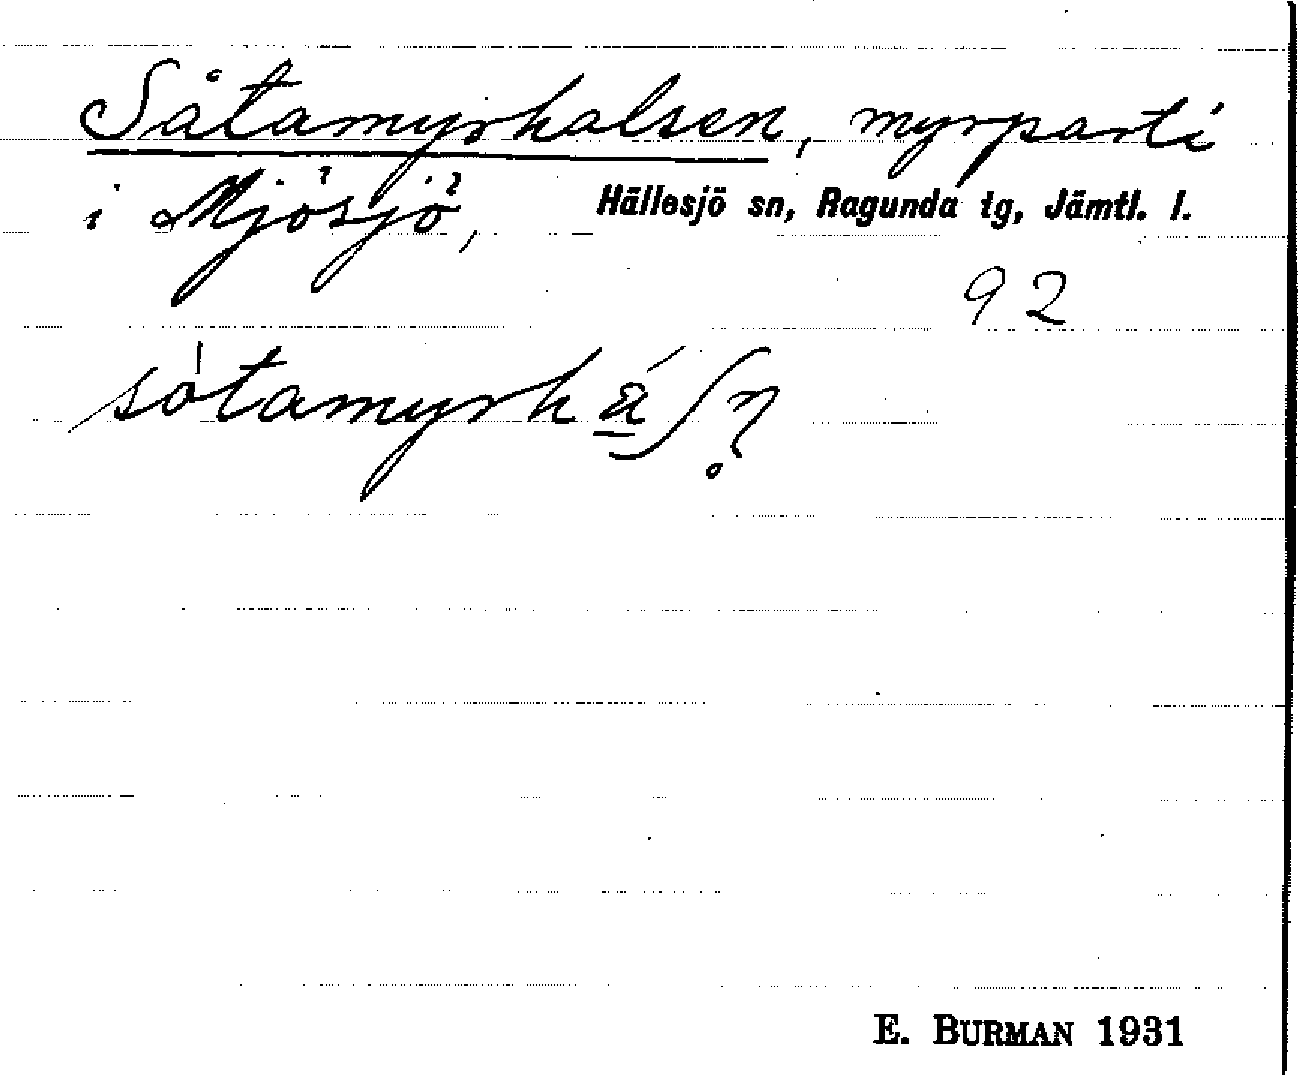 Såtamyrhalsen, myrparti
i Mjösjö, Hällesjö sn, Ragunda tg, Jämtl. l.
92
sòtamyrháʃn̥
E. BURMAN 1931